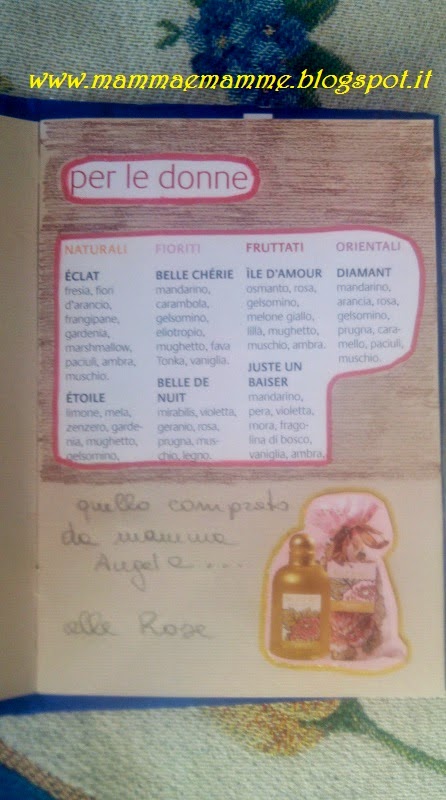 www.mammaemamme.blogspot.it
per le donne
NATURALI
ÉCLAT
fresia, fiori
d'arancio,
frangipane,
gardenia,
marshmallow,
paciuli, ambra,
muschio.
ÉTOILE
limone, mela,
zenzero, garde-
nia, mughetto,
gelsomino,
FIORITI
BELLE CHÉRIE
mandarino,
carambola,
gelsomino,
eliotropio,
mughetto, fava
Tonka, vaniglia.
BELLE DE
NUIT
mirabilis, violetta,
geranio, rosa,
prugna, mus-
chio, legno.
FRUTTATI
ÎLE D'AMOUR
osmanto, rosa,
gelsomino,
melone giallo,
lillà, mughetto,
muschio, ambra.
JUSTE UN
BAISER
mandarino,
pera, violetta,
mora, frago-
lina di bosco,
vaniglia, ambra,
ORIENTALI
DIAMANT
mandarino,
arancia, rosa,
gelsomino,
prugna, cara-
mello, paciuli,
muschio.
quello comprato
da mamma
Angela ...
alle Rose